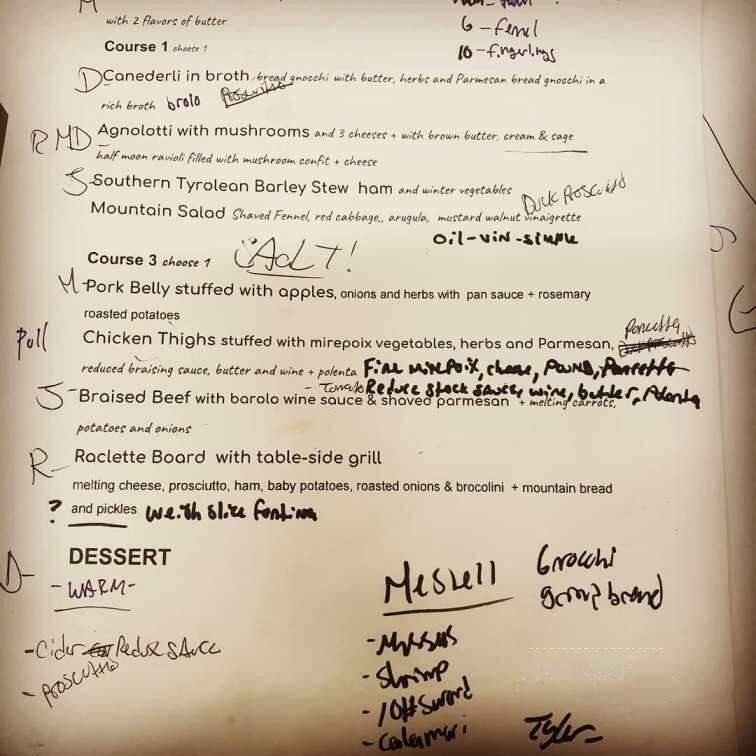 M
with 2 flavors of butter
6 - Fenel
Course 1 choose 1
10 - fingerlings
D Canederli in broth, bread gnocchi with butter, herbs and Parmesan bread gnocchi in a
rich broth brolo
R MD Agnolotti with mushrooms and 3 cheeses + with brown butter, cream & sage
half moon ravioli filled with mushroom confit + cheese
S Southern Tyrolean Barley Stew ham and winter vegetables Duck Proscuitto
Mountain Salad Shaved Fennel, red cabbage,, arugula, mustard walnut vinaigrette
oil-vin-simple
Course 3 choose 1
M- Pork Belly stuffed with apples, onions and herbs with pan sauce + rosemary
roasted potatoes
Pull Chicken Thighs stuffed with mirepoix vegetables, herbs and Parmesan, Pancetta
reduced braising sauce, butter and wine + polenta Fine mirepoix, cheese, Pound, Pancetta
- Tomato Reduce stock sauce, wine, butter, Polenta
S- Braised Beef with barolo wine sauce & shaved parmesan + melting carrots,
potatoes and onions
R- Raclette Board with table-side grill
melting cheese, prosciutto, ham, baby potatoes, roasted onions & brocolini + mountain bread
? and pickles Weigh slice Fontina
DESSERT
D-
- WARM -
- Cider Reduce SAuce
- Proscutto
Gnocchi
group bread
- Shrimp
- Calamari
Tyler